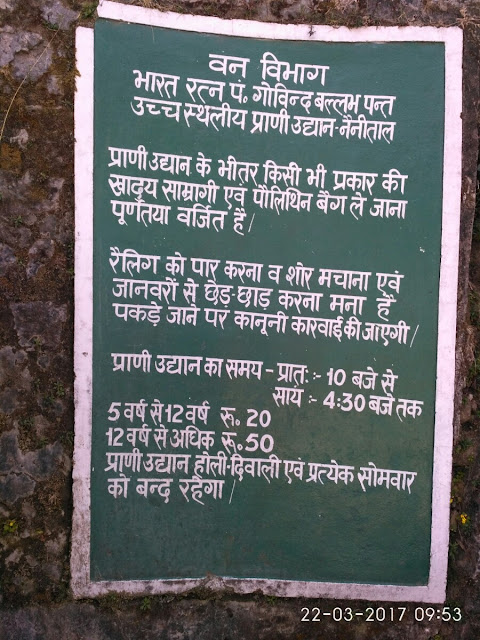 वन विभाग
भारत रत्न पं. गोविन्द बल्लभ पन्त
उच्च स्थलीय प्राणी उद्यान-नैनीताल
प्राणी उद्यान के भीतर किसी भी प्रकार की
खाद्य साम्रागी एवं पौलिथिन बैग ले जाना
पूर्णतया वर्जित है/
रैलिग को पार करना व शोर मचाना एवं
जानवरों से छेड़-छाड़ करना मना है
पकड़े जाने पर कानूनी कारवाई की जाएगी/
प्राणी उद्यान का समय - प्रातः :- 10 बजे से
सायं :- 4:30 बजे तक
5 वर्ष से 12 वर्ष रू. 20
12 वर्ष से अधिक रू. 50
प्राणी उद्यान होली-दिवाली एवं प्रत्येक सोमवार
को बन्द रहेगा/
22-03-2017 09:53